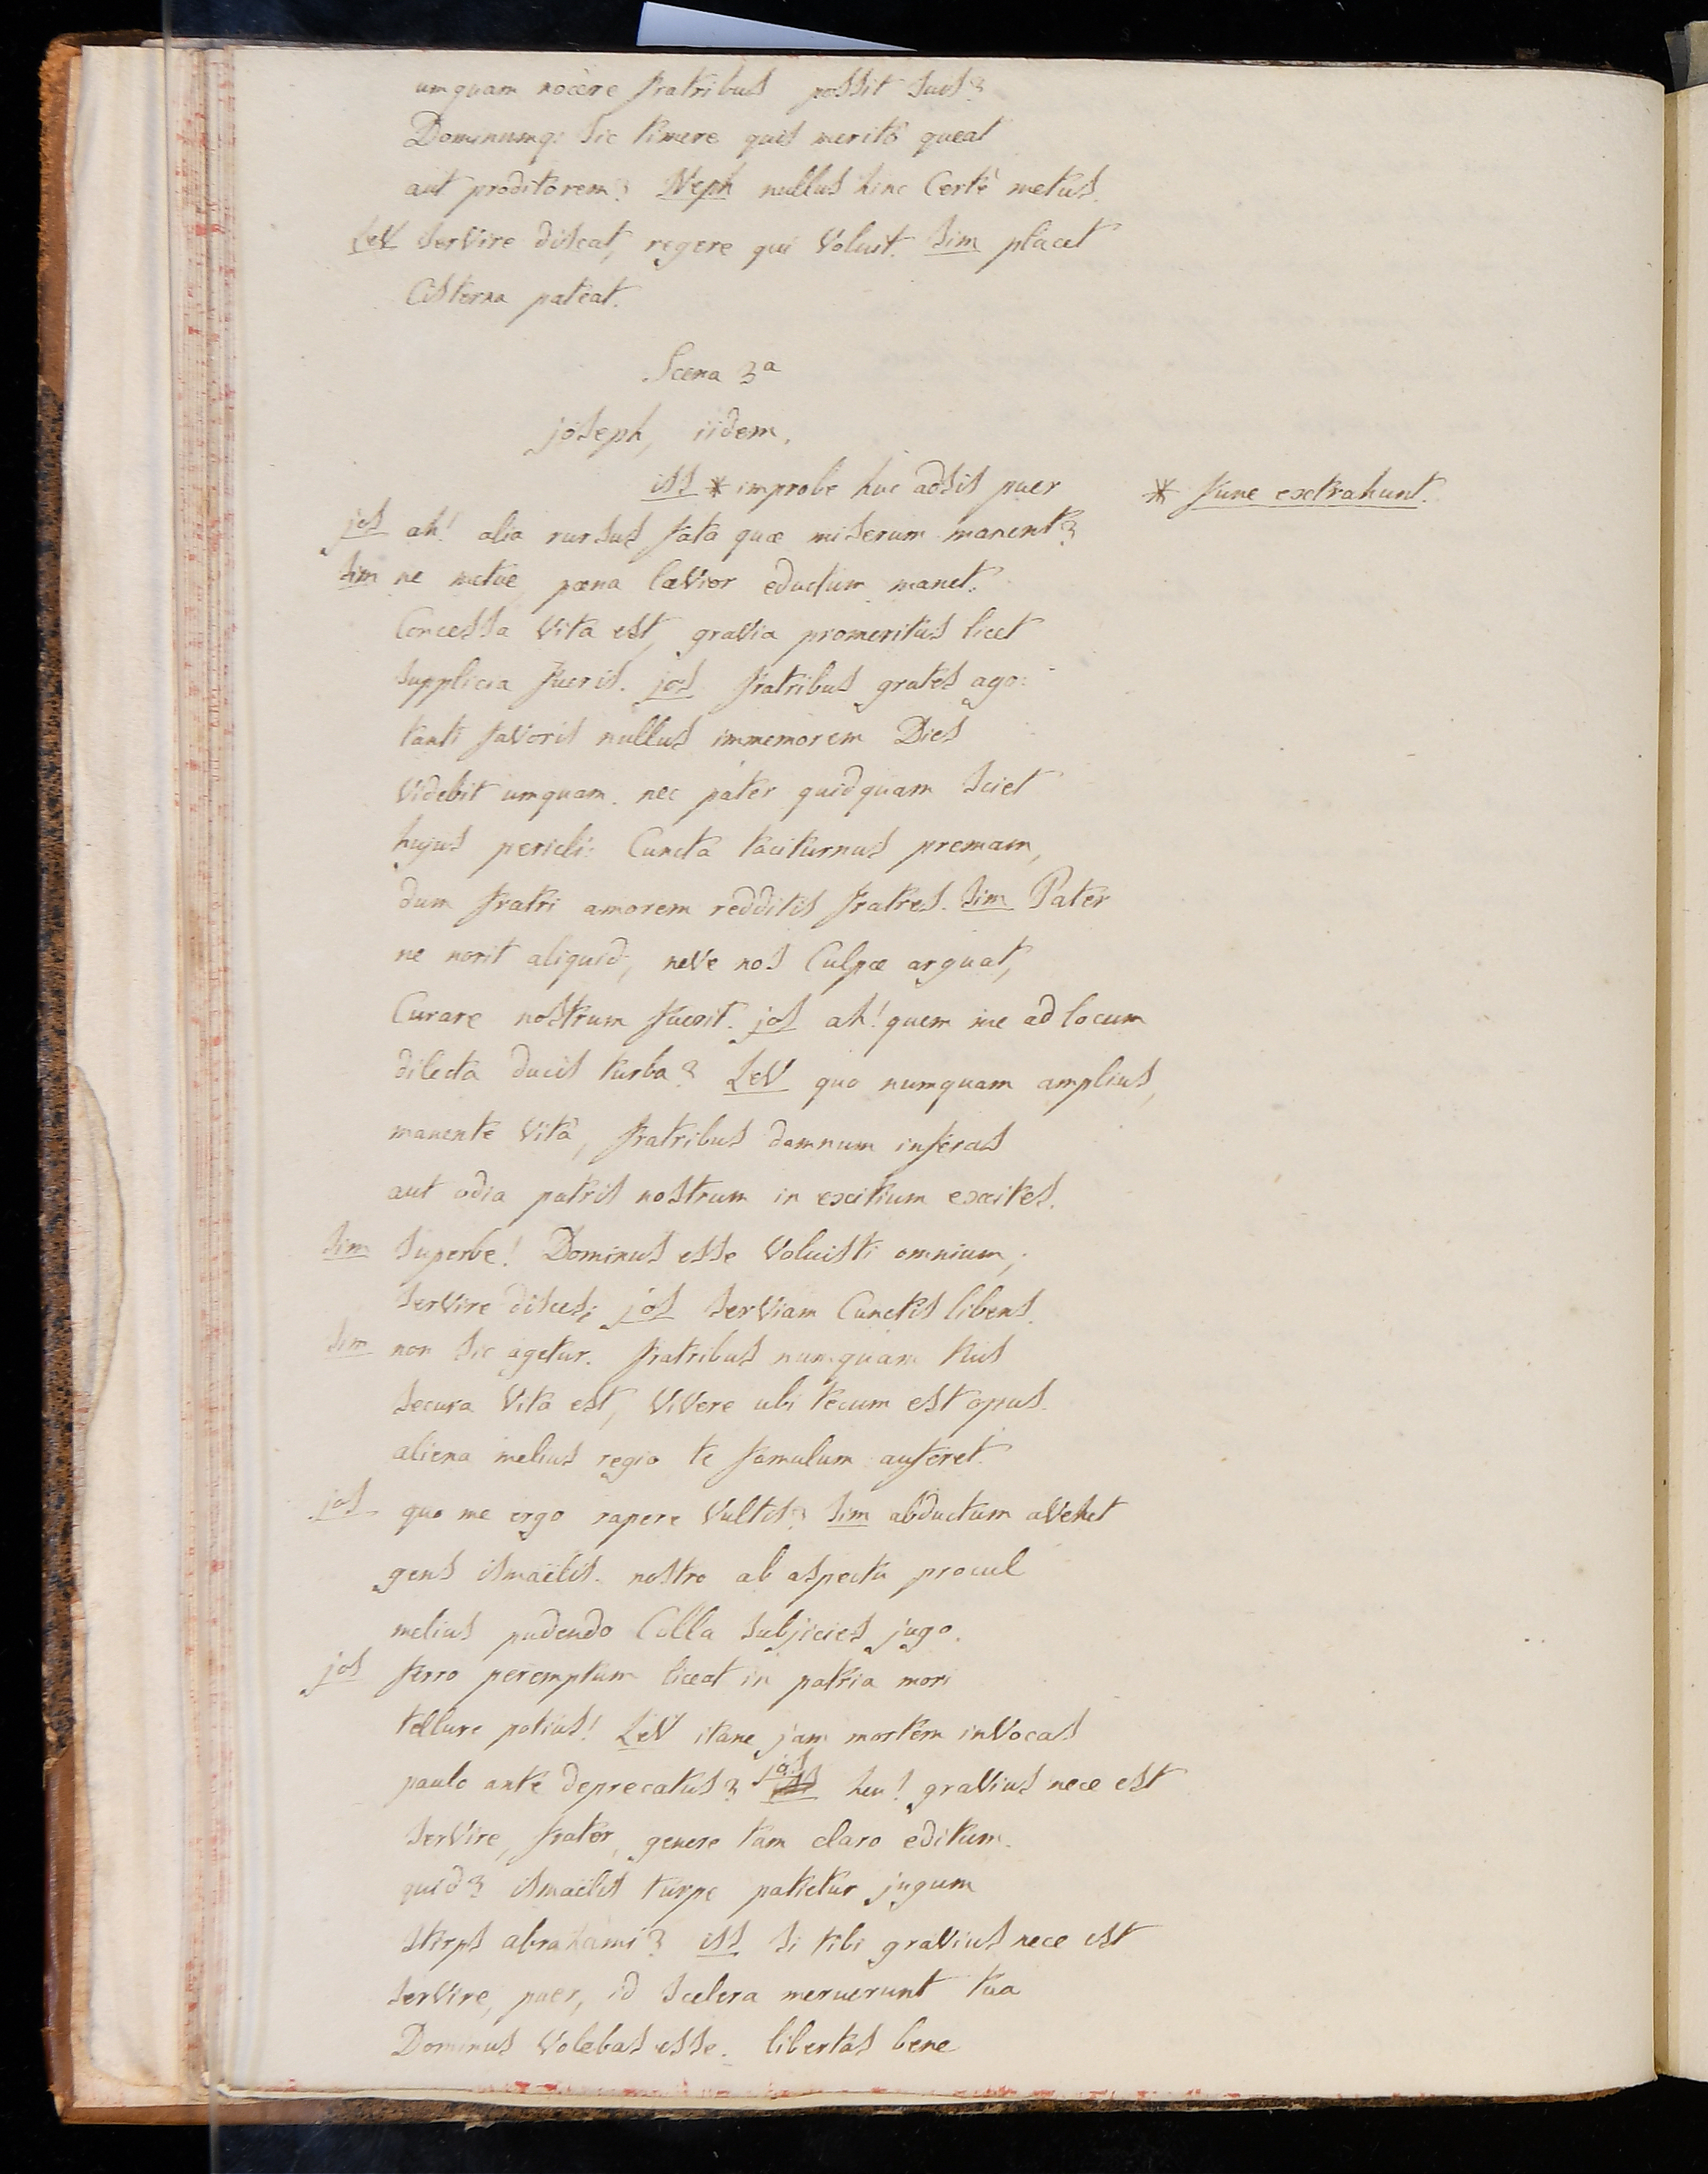 umquam nocere fratribus possit suis?
Dominumq: sic timere quis meritò queat
aut proditorem? Neph nullus hinc Certè metus.
Lev servire discat, regere qui Voluit. Sim placet
Cisterna pateat.
Scena 3ª
joseph, iidem.
iss * improbe huc adsis puer * fune extrahunt.
jos ah! alia rursus fata quæ miserum manent?
Sim ne metue pœna lævior eductum manet.
Concessa Vita est, gravia promeritus licet
supplicia fueris. jos fratribus grates ago:
tanti favoris nullus immemorem Dies
Videbit umquam. nec pater quidquam sciet
hujus pericli: Cuncta taciturnus premam,
dum fratri amorem redditis fratres. Sim Pater
ne norit aliquid, neve nos Culpæ arguat,
Curare nostrum fuerit. jos ah! quem me ad locum
dilecta ducis turba? Lev quo numquam amplius,
manente Vitâ, fratribus damnum inferas
aut odia patris nostrum in exitium excites.
Sim Superbe! Dominus esse Voluisti omnium,
servire disces; jos serviam Cunctis libens.
Sim non sic agetur. fratribus numquam tuis
secura Vita est, ViVere ubi tecum est opus.
aliena melius regio te famulum auferet.
jos quo me ergo rapere Vultis? Sim abductum aVehet
gens ismaëlis. nostro ab aspectu procul
melius pudendo Colla subjicies jugo.
jos ferro peremptum liceat in patria mori
tellure potius! Lev itane jam mortem inVocas
paulo ante deprecatus? jos heu! graVius nece est
serVire, frater, genere tam claro editum.
quid? ismaëlis turpe patietur jugum
stirps abrahami? iss si tibi graVius nece est
serVire, puer, id scelera meruerunt tua
Dominus Volebas esse. libertas bene